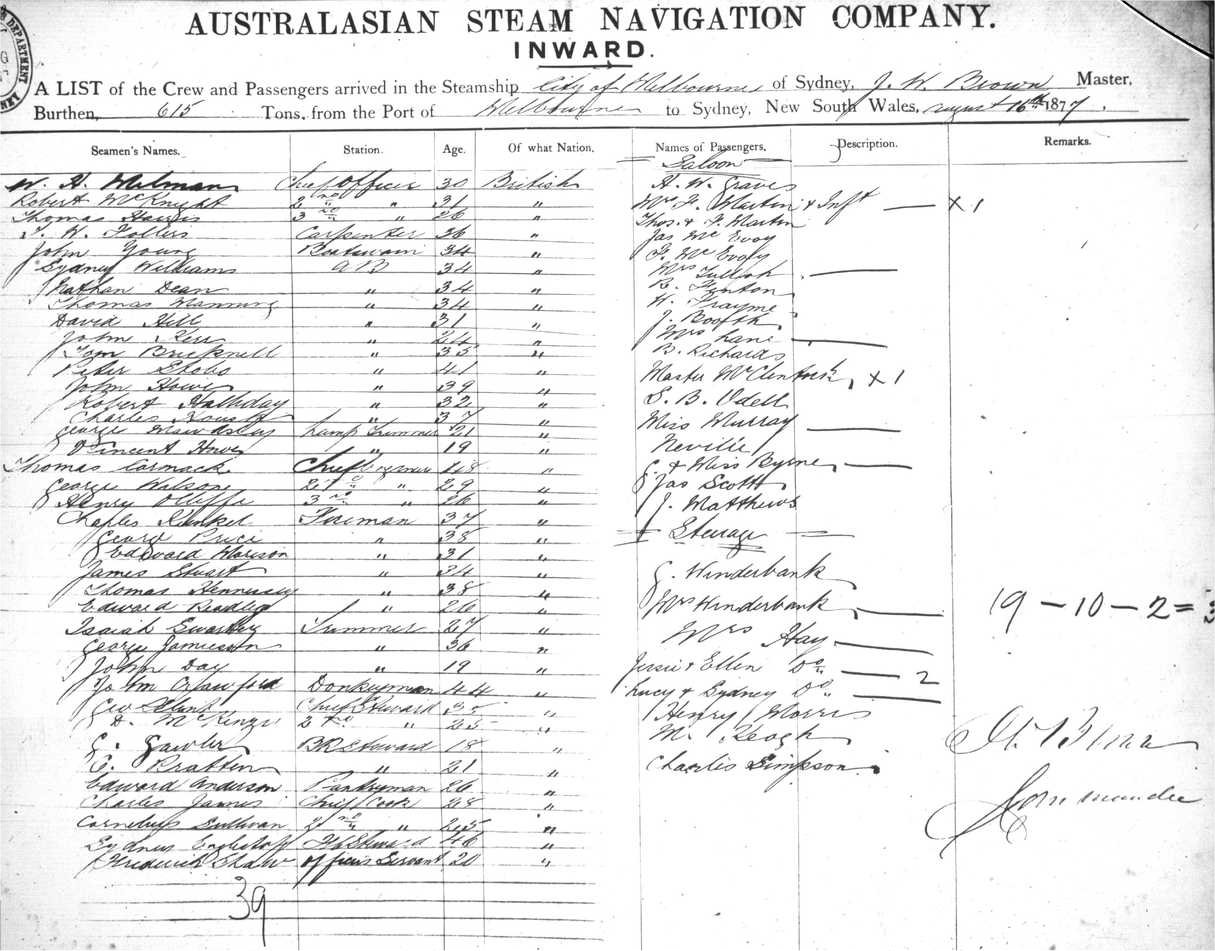 AUSTRALASIAN STEAM NAVIGATION COMPANY.
INWARD.
A LIST of the Crew and Passengers arrived in the Steamship City of Melbourne of Sydney, J. W. Brown Master,
Burthen, 615 Tons, from the Port of Melbourne to Sydney, New South Wales, August 16th 1877.
Seamen's Names. Station. Age. Of what Nation. Names of Passengers. Description. Remarks.
Saloon
W. H. Milman Chief Officer 30 British
Robert McKnight 2nd " 31 "
Thomas Harris 3rd " 26 "
Carpenter 36 "
John Young Boatswain 34 "
Sydney Williams AB 34 "
Nathan Dean " 34 "
Thomas Manning " 34 "
David Hill " 31 "
John Kerr " 24 "
Tom Bricknell " 35 "
Peter " 41 "
John Howe " 39 "
Robert Halliday " 32 "
Charles " 37 "
George Lamp Trimmer 21 "
Vincent Howe " 19 "
Thomas Cormack Chief Engineer 48 "
George Wilson 2nd " 29 "
Henry 3rd " 26 "
Charles Kunkel Fireman 37 "
George Price " 38 "
Edward " 31 "
James Stuart " 34 "
Thomas Hennessy " 38 "
Edward " 26 "
Isaiah Trimmer 27 "
George Jamieson " 36 "
John Day " 19 "
John Crawford Donkeyman 44 "
Geo Chief Steward 35 "
2nd " 25 "
G. Gawler BR Steward 18 "
E. Pratten " 21 "
Edward Anderson Pantryman 26 "
Charles James Chief Cook 28 "
Cornelius Sullivan 2nd " 25 "
Sydney Steward 46 "
Frederick Shaw Officers Servant 20 "
39
H. W. Graves
Mrs F. Martin & Inft — X 1
Thos. & F. Martin
Jas McEvoy
F. McEvoy
Mrs Tulloh —
R. Fenton
H. Frayme
J. Booth
Mrs Lane —
B. Richards
Master McClintock, X 1
S. B. Odell
Miss Murray —
Neville
G. & Miss Byrne —
Jas Scott
J. Matthews
Steerage
G. Hinderbank
Mrs Hinderbank —
Mrs Hay —
Jessie & Ellen Do — 2
Lucy & Sydney Do —
Henry Morris
M. Keogh
Charles Simpson
19 - 10 - 2 = 3
Commander